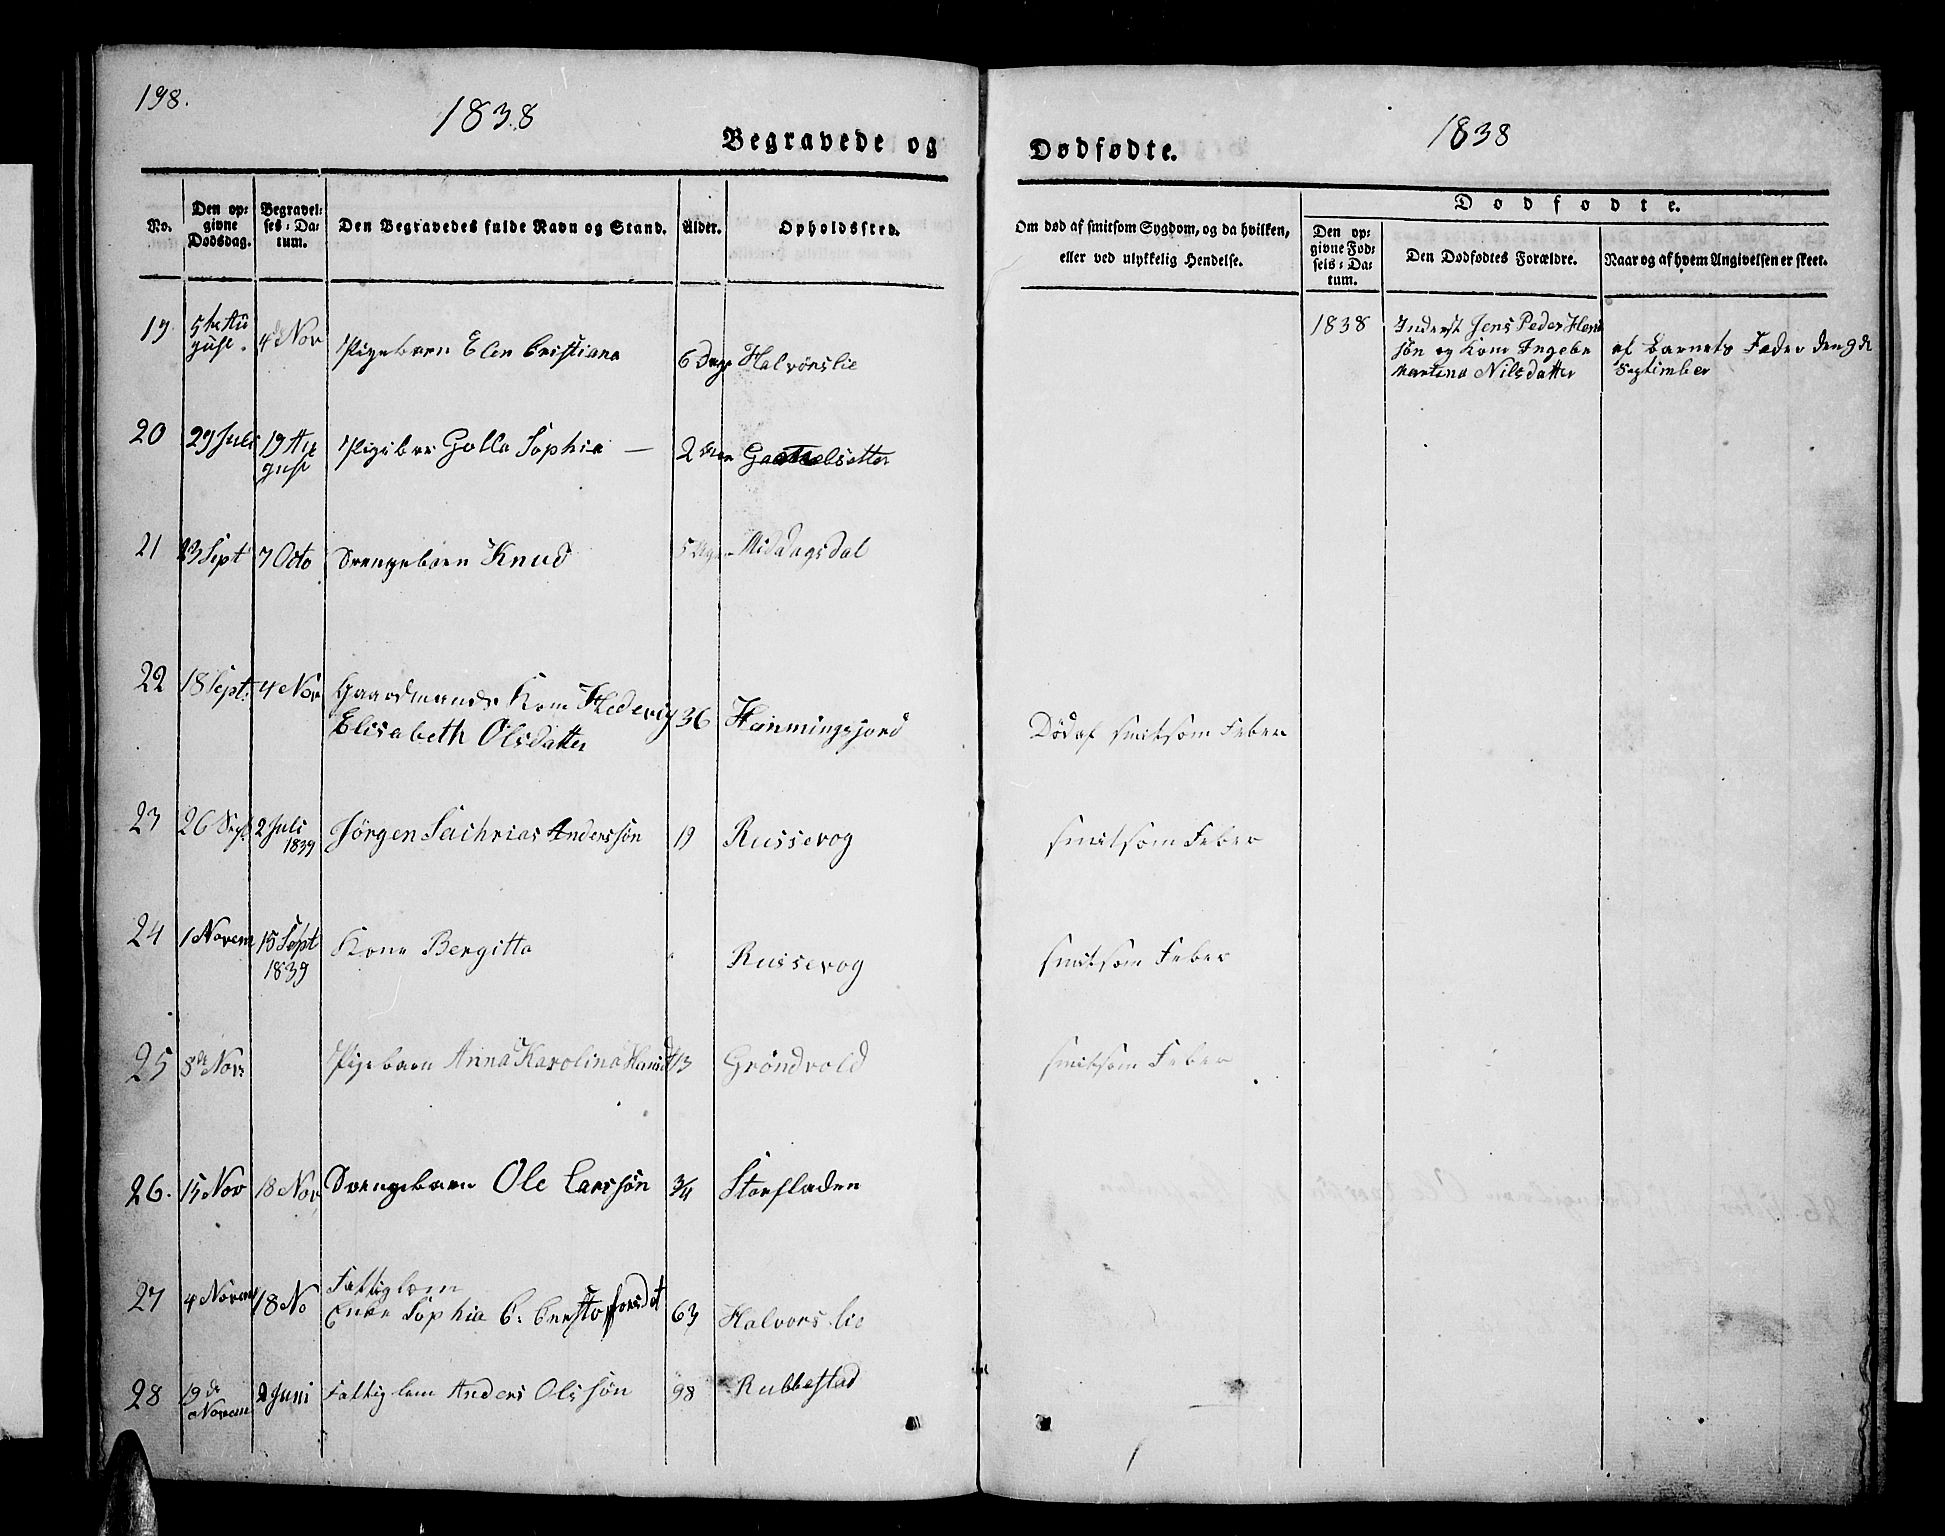 198.
1838
1838
Begravede og
Dødfødte.
No.
Den op-
givne
Dødsdag.
Begravel-
ses-Da-
tum.
Den Begravedes fulde Navn og Stand.
Alder.
Opholdssted.
Om død af smitsom Sygdom, og da hvilken,
eller ved ulykkelig Hendelse.
Dødfødte.
Den op-
givne Fød-
sels-Da-
tum.
Den Dødfødtes Forældre.
Naar og af hvem Angivelsen er skeet.
19 5te Au
gust. 4de Nov Pigebarn Elen Cristiana 6 Dage Halvorslie
1838 Inderst Jens Peder
søn og Kone Ingebr
Martina Nilsdatter
af Barnets Fader den 9de
September
20 29 Juli 19 Au
gust Pigebar Golla Sophia 2
21 23 Sept 7 Octo Drengebarn Knud 5 Middagsdal
22 18 Sept. 4 Nov Gaardmands Kone Hedevig
Elisabeth Olsdatter 36 Hemmingsjord Død af smitsom Feber
23 26 Sept 2 Juli
1839 Jørgen Sachrias Anderssøn 19 Russevog smitsom Feber
24 1 Novem 15 Sept
1839 Kone Bergitta Russevog smitsom Feber
25 8de Nov. Pigebarn Anna Karolina 13 Grøndvold smitsom Feber
26. 15 Nov 18 Nov Drengebarn Ole Larssøn 3/4 Storfladen
27 4 Novem 18 No Fattiglem
Enke Sophia C. 63 Halvorslie
28 19de
Novem 2 Juni Fattiglem Anders Olssøn 98 Rubbestad